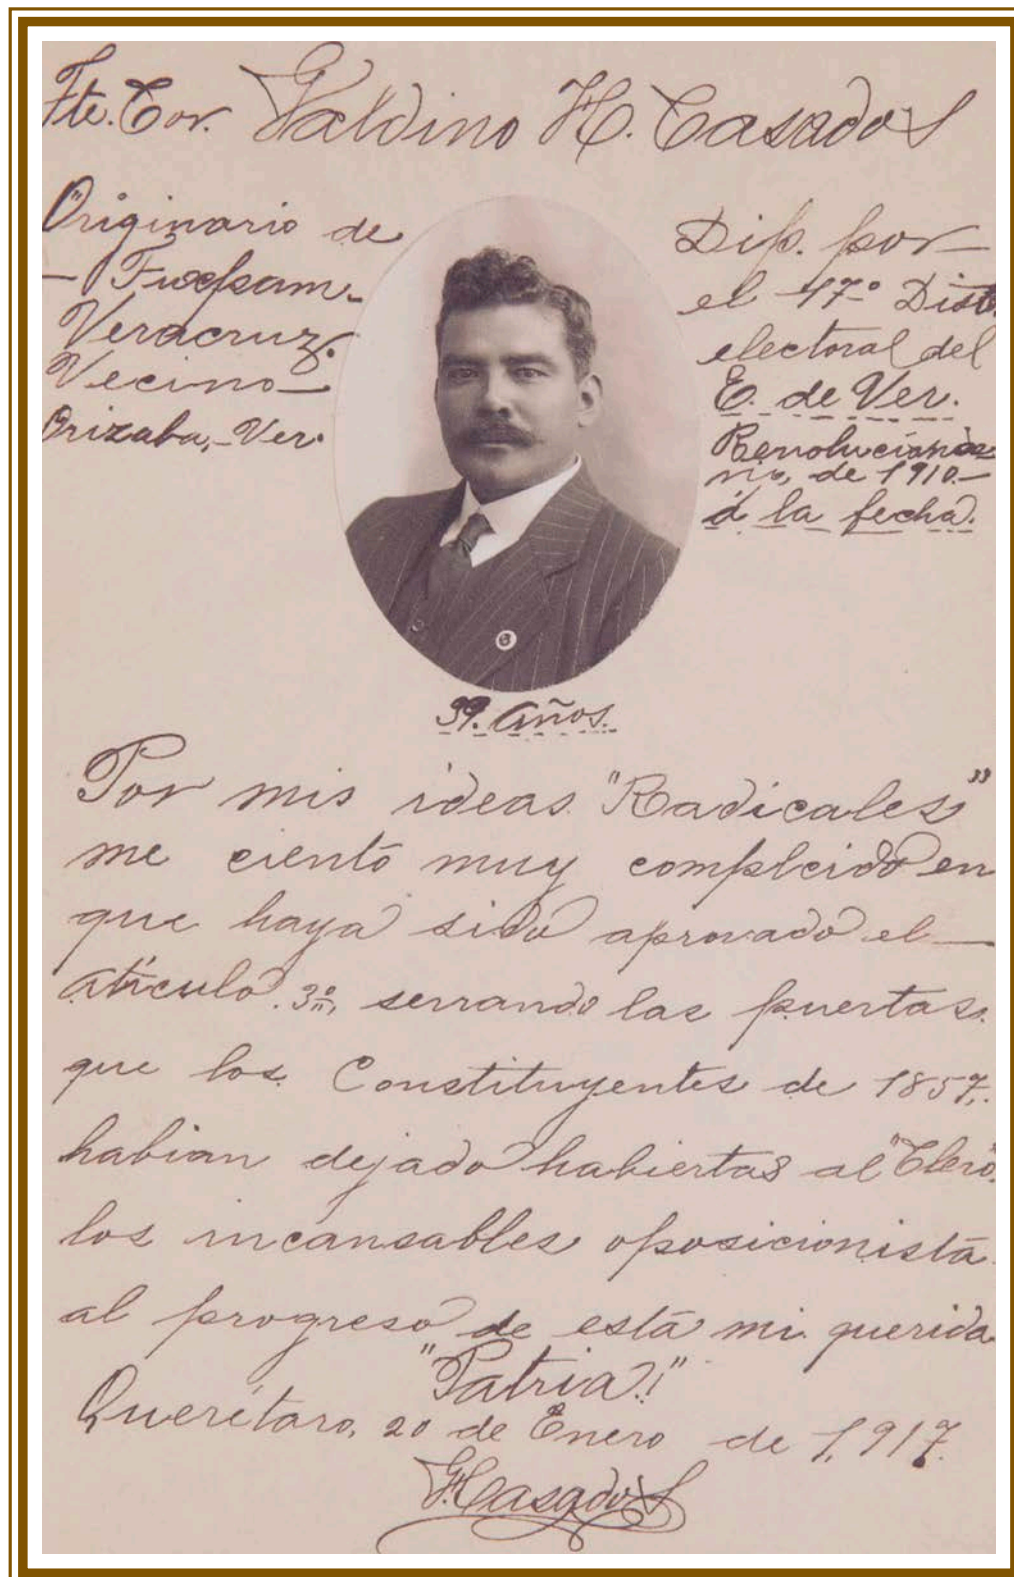 Tte. Cor. Galdino H. Casados
Originario de
- Tuxpam -
Veracruz.
Vecino
Orizaba, - Ver.
Dip. por
el 17º Distº
electoral del
E. de Ver.
Revoluciona
rio, de 1910 -
á la fecha.
39. Años.
Por mis ideas "Radicales"
me ciento muy complcido en
que haya sido aprovado el
atículo. 3º, serrando las puertas.
que los Constituyentes de 1857.
habian dejado habiertas al "Clero.
los incansables oposicionista
al progreso de está mi querida
"Patria!"
Querétaro, 20 de Enero de 1,917.
G.H.Casados